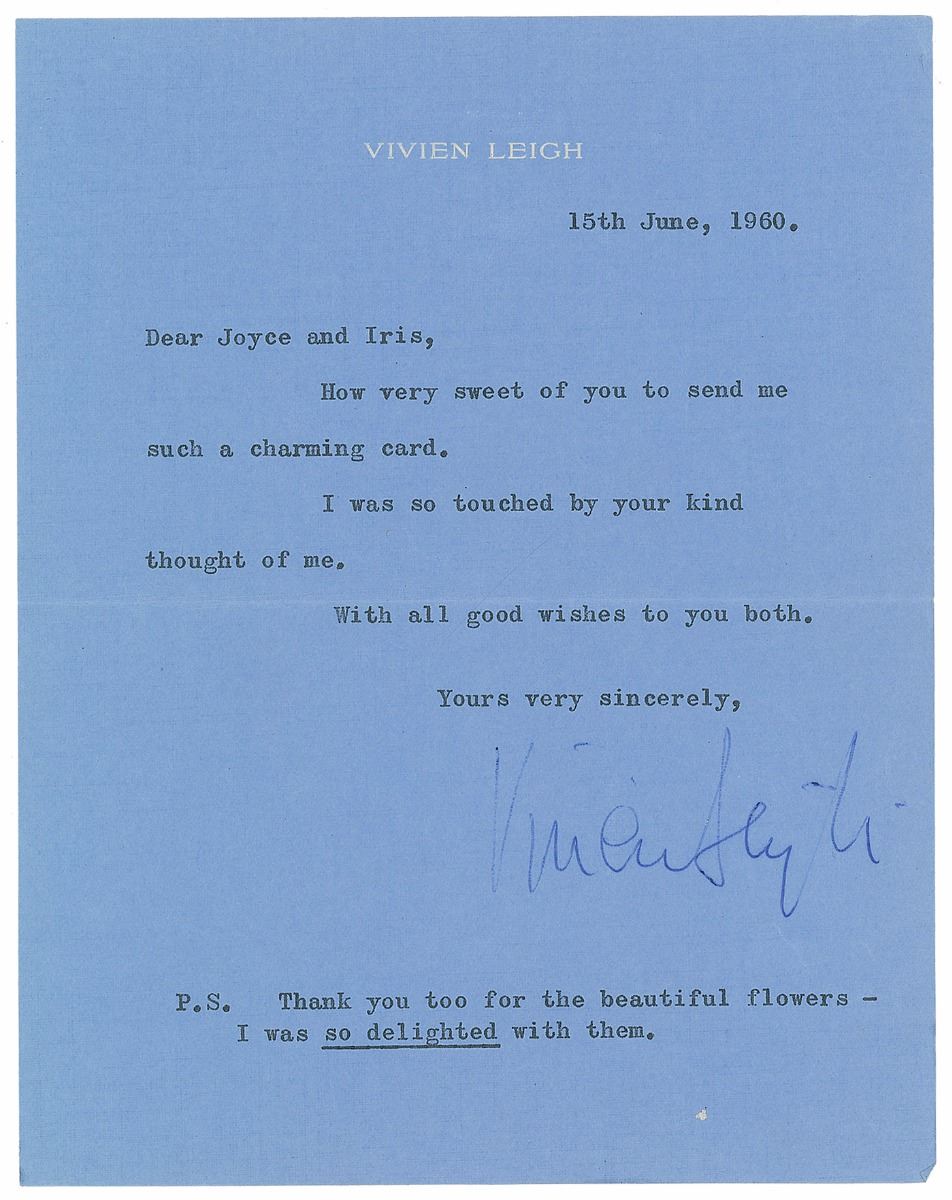 VIVIEN LEIGH
15th June, 1960.
Dear Joyce and Iris,
How very sweet of you to send me
such a charming card.
I was so touched by your kind
thought of me.
With all good wishes to you both.
Yours very sincerely,
Vivien Leigh
P.S. Thank you too for the beautiful flowers -
I was so delighted with them.